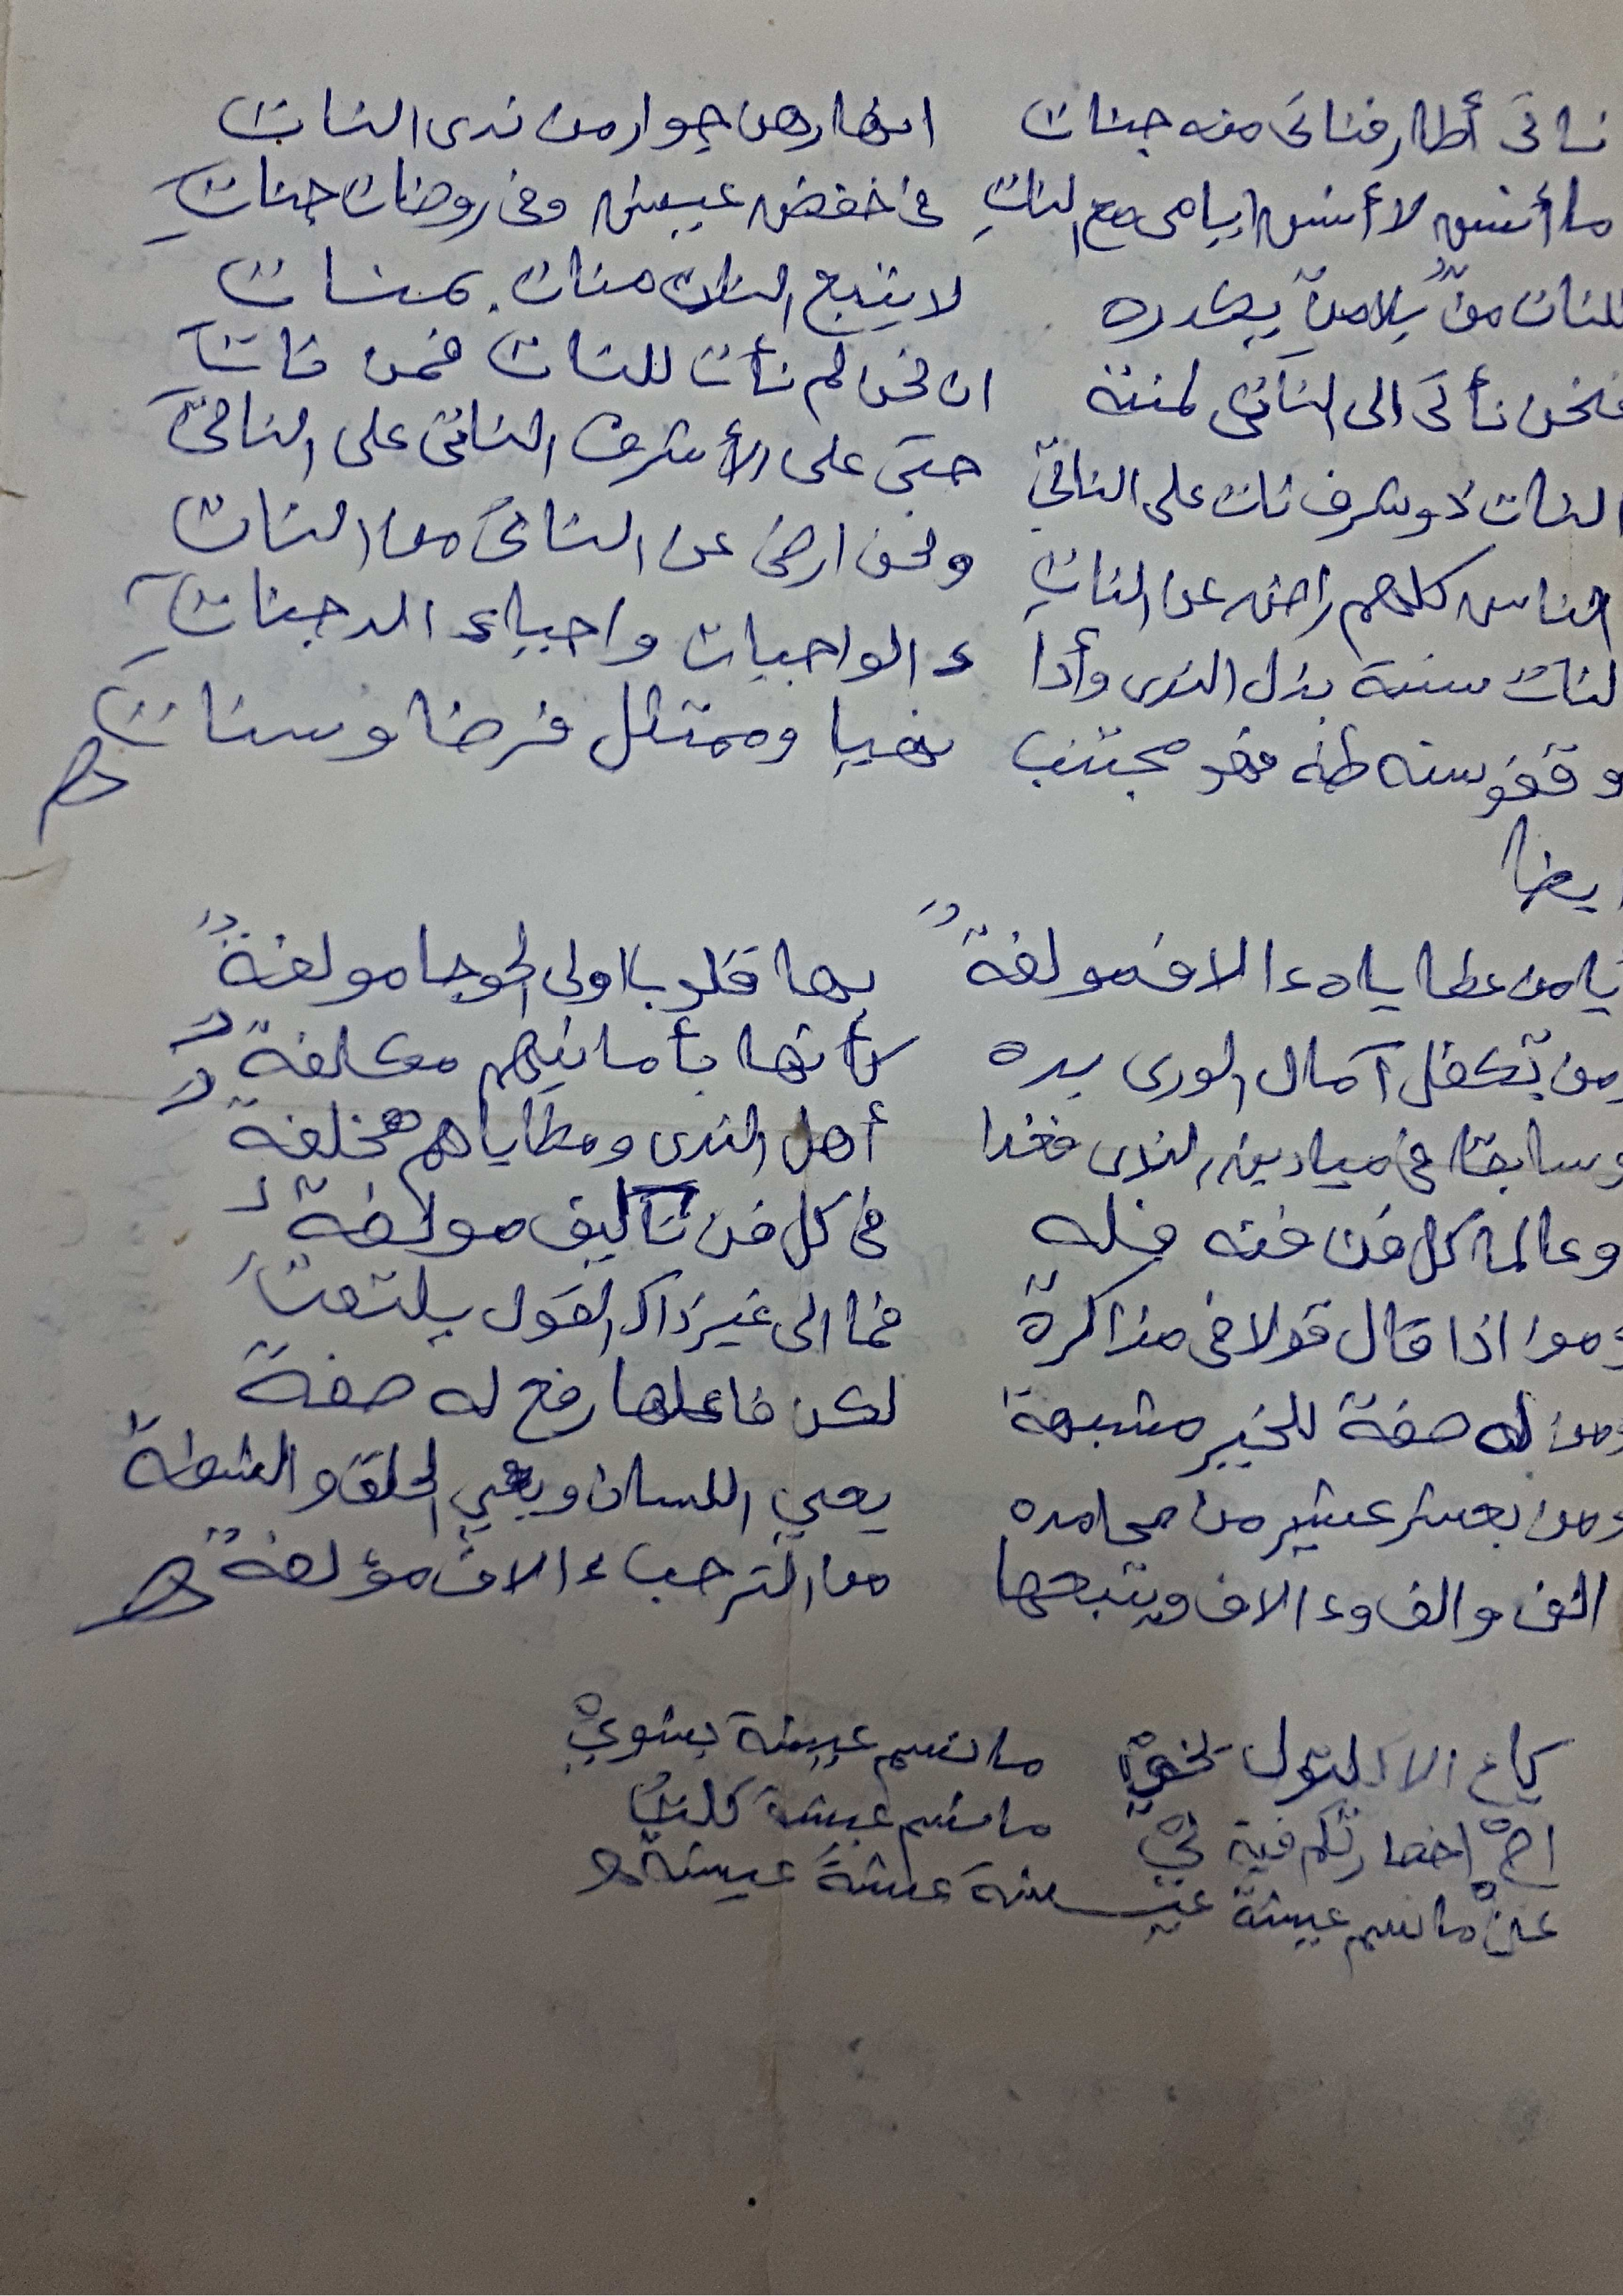 ناتى أطار فناتى منه جنات انهارهن جوار من ندى النات
ما أنس لا أنس ايامى مع النات فى خفض عيش وفى روضات جنات
للنات منّ بلا منّ يكدره لا يتبع النات منات بمنات
فنحن نأتى الى الناتى لمنته ان نحن لم نأت للنات فمن نات
النات ذو شرف نات على الناتى حتى على الأشرف الناتى على الناتى
الناس كلهم راض عن النات ونحن ارضى عن الناتى من النات
لنات سنة بذل الندى وأدا ء الواجبات واحياء الدجنات
وقفو سنه طه فهو مجتنب نهيا وممتثل فرضا وسنات
ايضا
يا من عطاياه ءالاف مولفة بها قلوب اولى الحوجا مولفة
ومن تكفل آمال الورى يده كأنها بأمانيهم مكلفة
وسابقا فى ميادين الندى فغدا أهل الندى ومطاياهم مخلفة
وعالما كل فن فنه فله فى كل فن تآليف مولفة
ومن اذا قال قولا فى مذاكرة فما الى غير ذاك القول يلتفت
ومن له صفة للخير مشبهة لكن فاعلها رفع له صفة
ومن بعشر عشير من محامده يعيي اللسان ويعيي الحلق والشفة
الف والف وءالاف ويتبعها من الترحب ءالاف مؤلفة
ماتسم عيشة
ماتسم عيشة
ماتسم عيشة عيشة عيشة